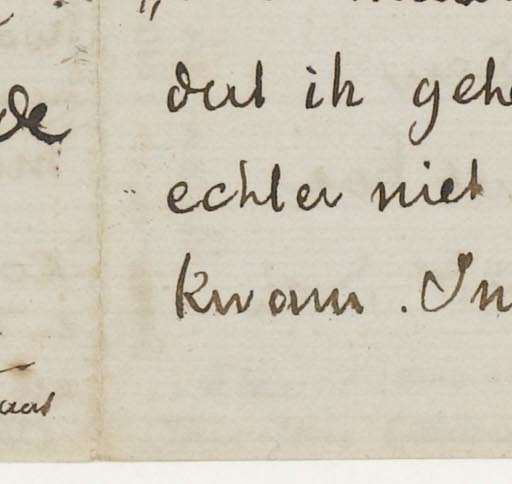 de
aat
dat ik gehe
echter niet
kwam. In